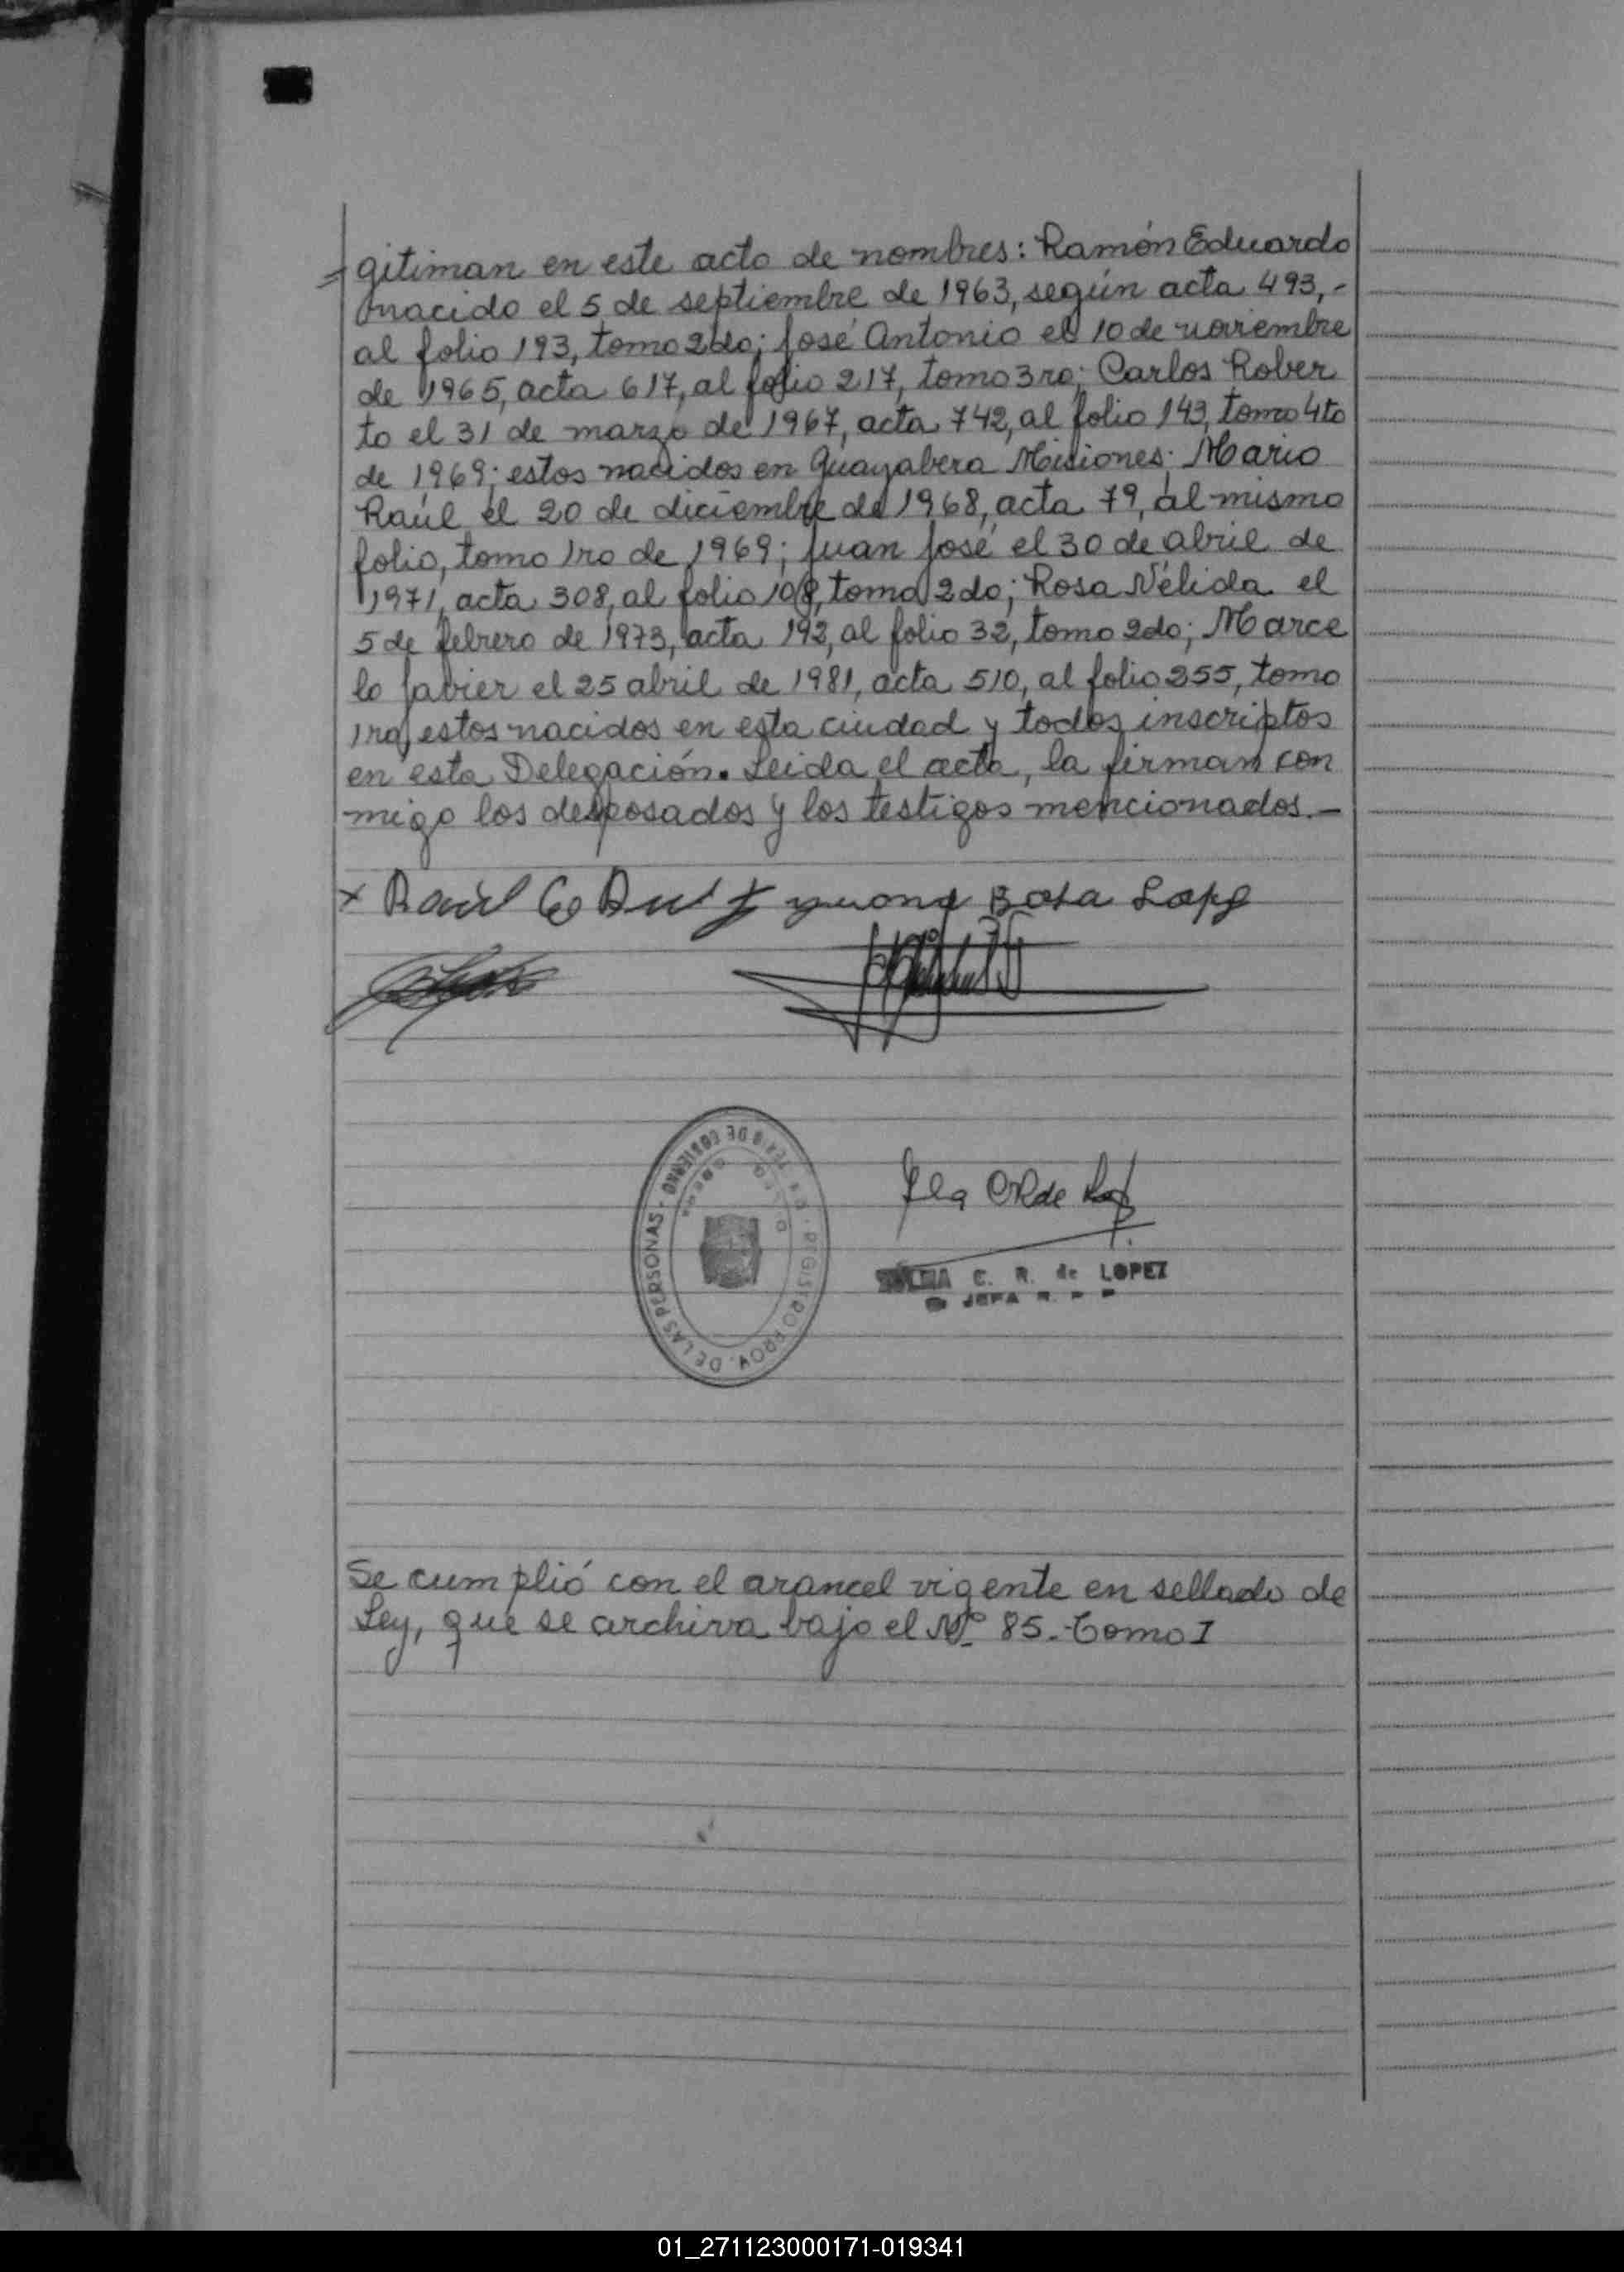 =gitiman en este acto de nombres: Ramón Eduardo
nacido el 5 de septiembre de 1963, según acta 493,-
al folio 193, tomo 2do; José Antonio el 10 de noviembre
de 1965, acta 617, al folio 217, tomo 3ro; Carlos Rober
to el 31 de marzo de 1967, acta 742, al folio 143, tomo 4to
de 1969; estos nacidos en Guayabera Misiones; Mario
Raúl el 20 de diciembre de 1968, acta 79, al mismo
folio, tomo 1ro de 1969; Juan José el 30 de abril de
1971, acta 308, al folio 108, tomo 2do; Rosa Nélida el
5 de febrero de 1973, acta 192, al folio 32, tomo 2do; Marce
lo Javier el 25 abril de 1981, acta 510, al folio 255, tomo
1ro, estos nacidos en esta ciudad y todos inscriptos
en esta Delegación. Leida el acta, la firman con
migo los desposados y los testigos mencionados.-
x Raúl
REGISTRO PROV. DE LAS PERSONAS - DE GOBIERNO
C. R. de LOPEZ
JEFA R. P. P.
Se cumplió con el arancel vigente en sellado de
Ley, que se archiva bajo el Nº 85.-Tomo I
01_271123000171-019341